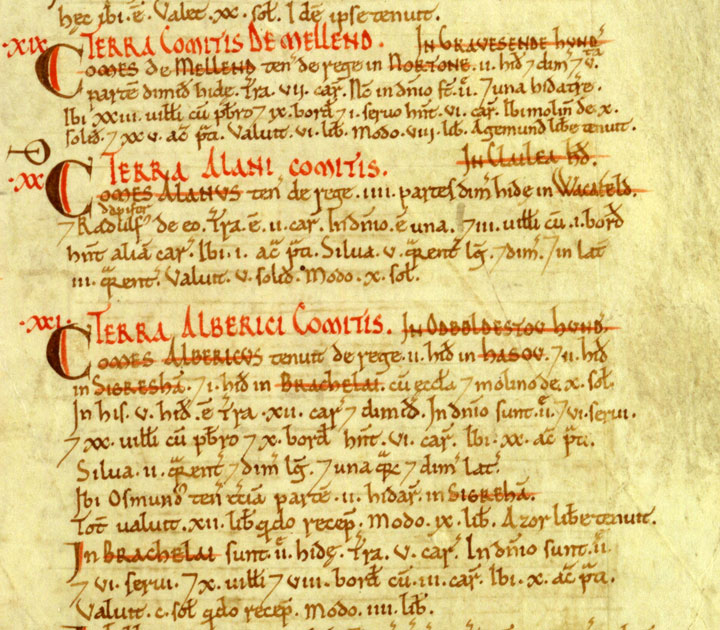 hęc ibi .ē. Valet .xx. sol. Idē ipse tenuit.
.XIX. TERRA COMITIS DE MELLEND. IN GRAVESENDE HVND'
COMES de MELLEND ten de rege in NORTONE .ii. hid 7 dim 7 v.ta
partē dimid hidę. Tra .vii. car. Nc in dnio st .ii. 7 una hida tre.
Ibi .xxiii. uilli cū pbro 7 ix. bord 7 i. seruo hnt .vi. car. Ibi molin de .x.
solid. 7 xx v. ac pti. Valuit .vi. lib. Modo .viii. lib. Agemund libe tenuit.
.XX. TERRA ALANI COMITIS. In Clailea hd.
COMES ALANVS ten de rege .iiii. partes dim hidę in WACAFELD.
dapifer
7 Radulf' de eo. Tra .ē. ii. car. In dnio .ē una. 7 iii. uilli cū .i. bord
hnt aliā car. Ibi .i. ac pti. Silua .v. qrent lg. 7 dim. 7 in lat
iii. qrent. Valuit .v. solid. Modo .x. sol.
.XXI. TERRA ALBERICI COMITIS. IN ODBOLDESTOV HVND.
COMES ALBERICVS tenuit de rege .ii. hid in HASOV. 7 ii. hid
in SIGRESHĀ. 7 i. hid in BRACHELAI. cū ęccla 7 molino de .x. sol.
In his .v. hid .ē tra .xii. car 7 dimid. In dnio sunt .ii. 7 vi. serui.
7 xx. uilli cū pbro 7 x. bord hnt .vi. car. Ibi .xx. ac pti.
Silua .ii. qrent 7 dim lg. 7 una qz 7 dim lat.
Ibi Osmund ten tciā partē .ii. hidar. in SIGREHĀ.
Tot ualuit .xii. lib qdo recep. Modo .ix. lib. Azor libe tenuit.
In BRACHELAI sunt .ii. hidę. Tra .v. car. In dnio sunt .ii.
7 vi. serui. 7 x. uilli 7 viii. bord cū .iii. car. Ibi .x. ac pti.
Valuit .c. sol qdo recep. Modo .iiii. lib.